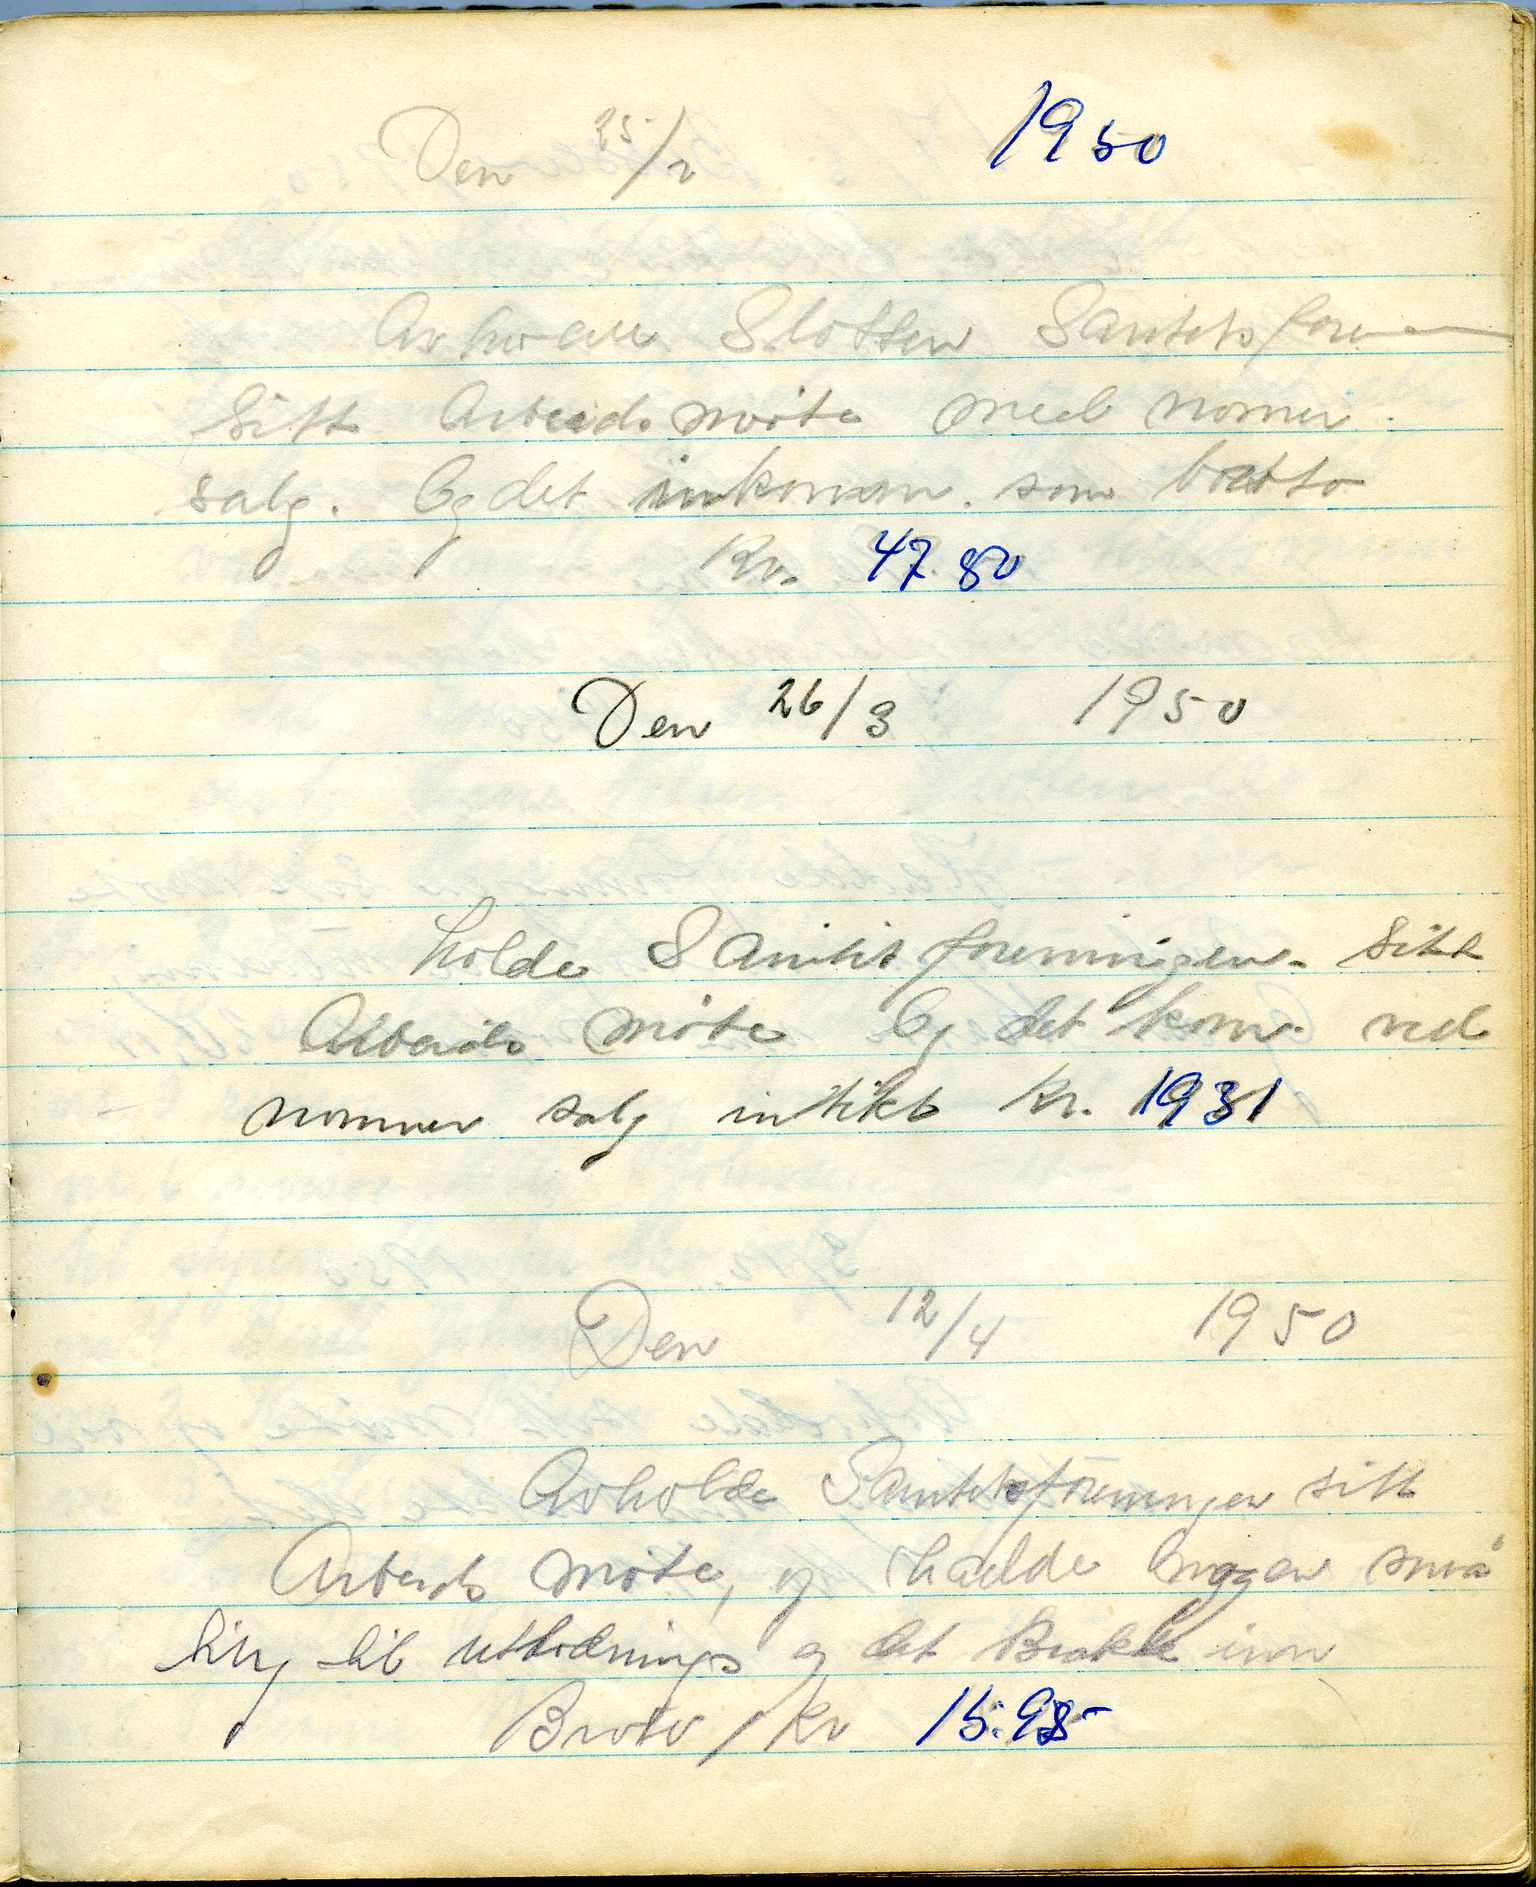 Den 25/2 1950
Avholdt Slotten Sanitetsforen
Sitt Arbeidsmøte med nomer
salg. Og det innkomm. som brutto
Kr. 47 80
Den 26/3 1950
holde Sanitetsforeningen Sitt
Arbeids møte Og det kom ved
nommer salg intikt kr. 1931
Den 12/4 1950
Avholde Sanitetsforeningen sitt
Arbeids møte, og hadde noen små
ting til utlodnings og det Brakte inn
Bruto / Kr 15.95